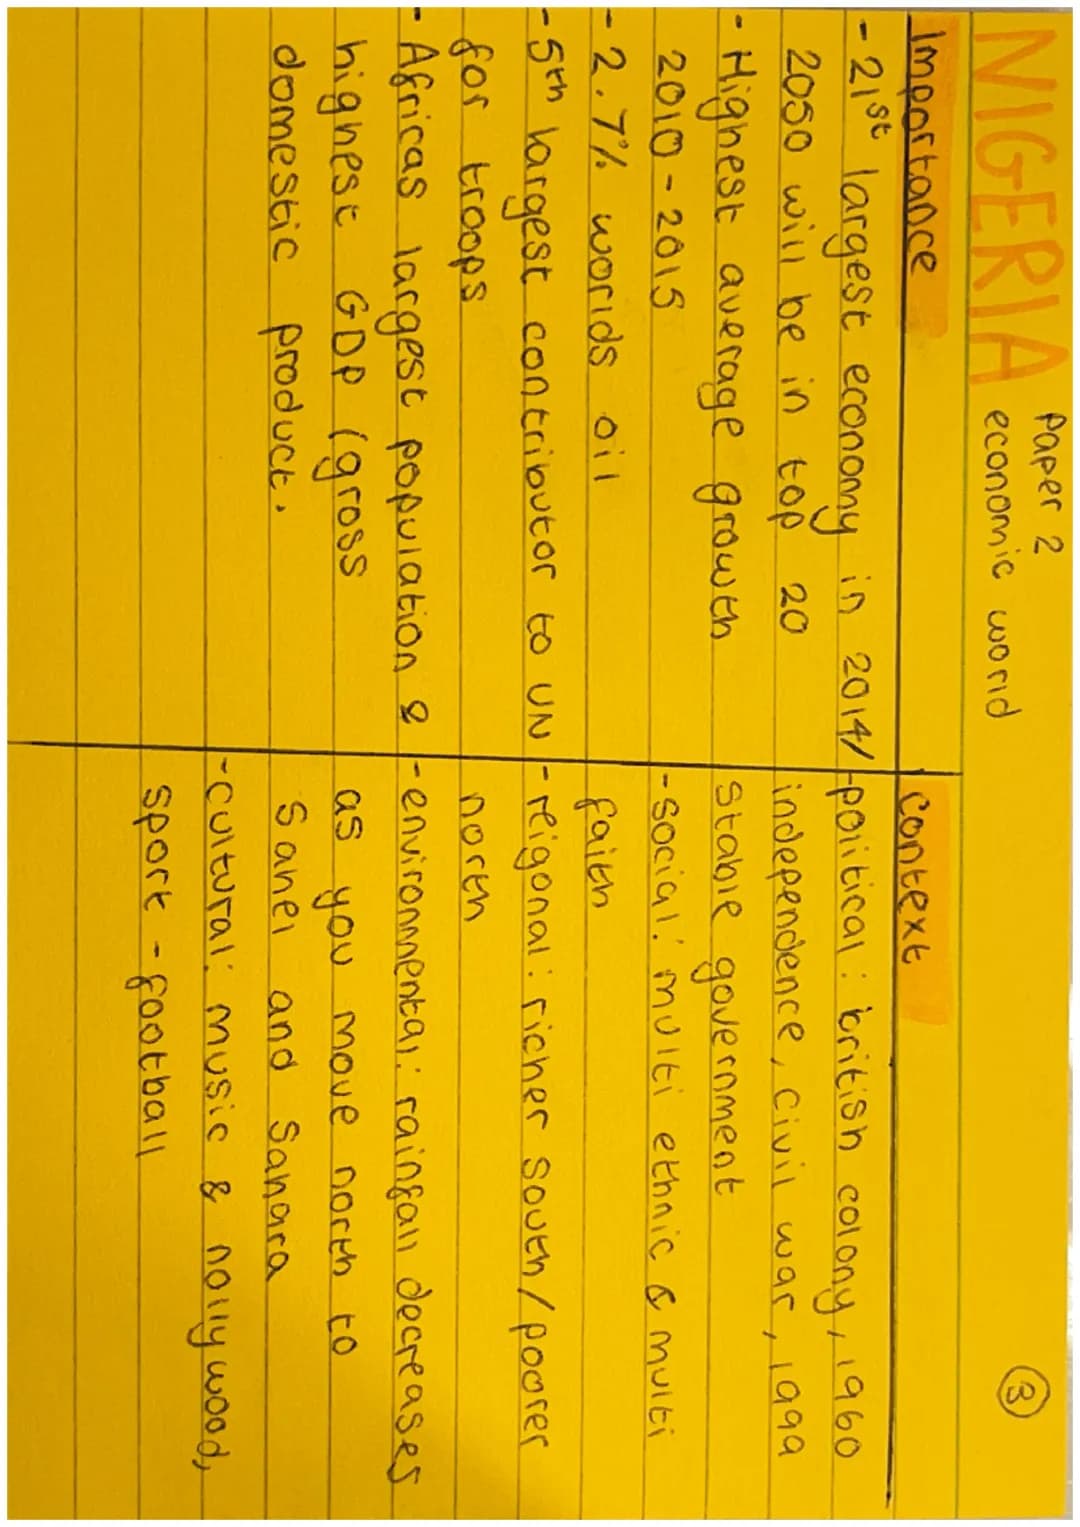 NIGERIA
paper 2
economic world
3
Importance
- 21st largest economy in 2014/
2050 will be in top 20
- Highest average growth
2010-2015
- 2.7% worlds oil
- 5th largest contributor to UN
for troops
- Africas largest population &
highest GDP (gross
domestic product.
Context
- political: british colony, 1960
independence, civil war, 1999
stable government
- social: multi ethnic & multi
faith
- reigonal: richer south/poorer
north
- environmental: rainfall decreases
as you move north to
Sahel and Sahara
- cultural: music & nollywood,
sport - football